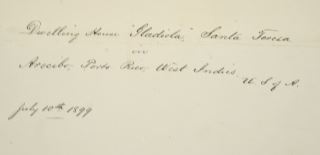 Dwelling House "Gladiola," Santa Teresa
in
Arecibo, Porto Rico, West Indies,
U. S. of A.
July 10th 1899